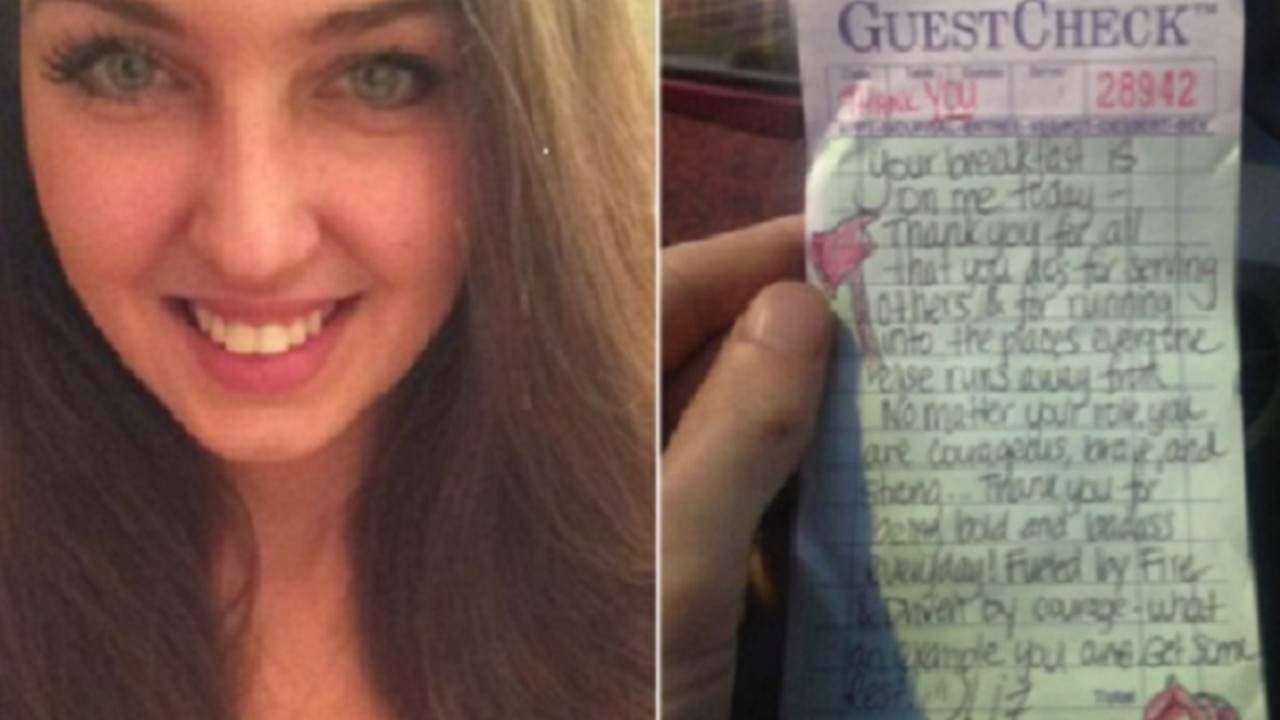 GUESTCHECK™
THANK YOU 28942
your breakfast is
on me today -
Thank you for all
that you do; for serving
others & for running
into the places everyone
else runs away from.
No matter your role, you
are courageous, brave, and
strong... Thank you for
being bold and badass
everyday! Fueled by Fire
& Driven by courage - what
an example you are. Get some
Rest